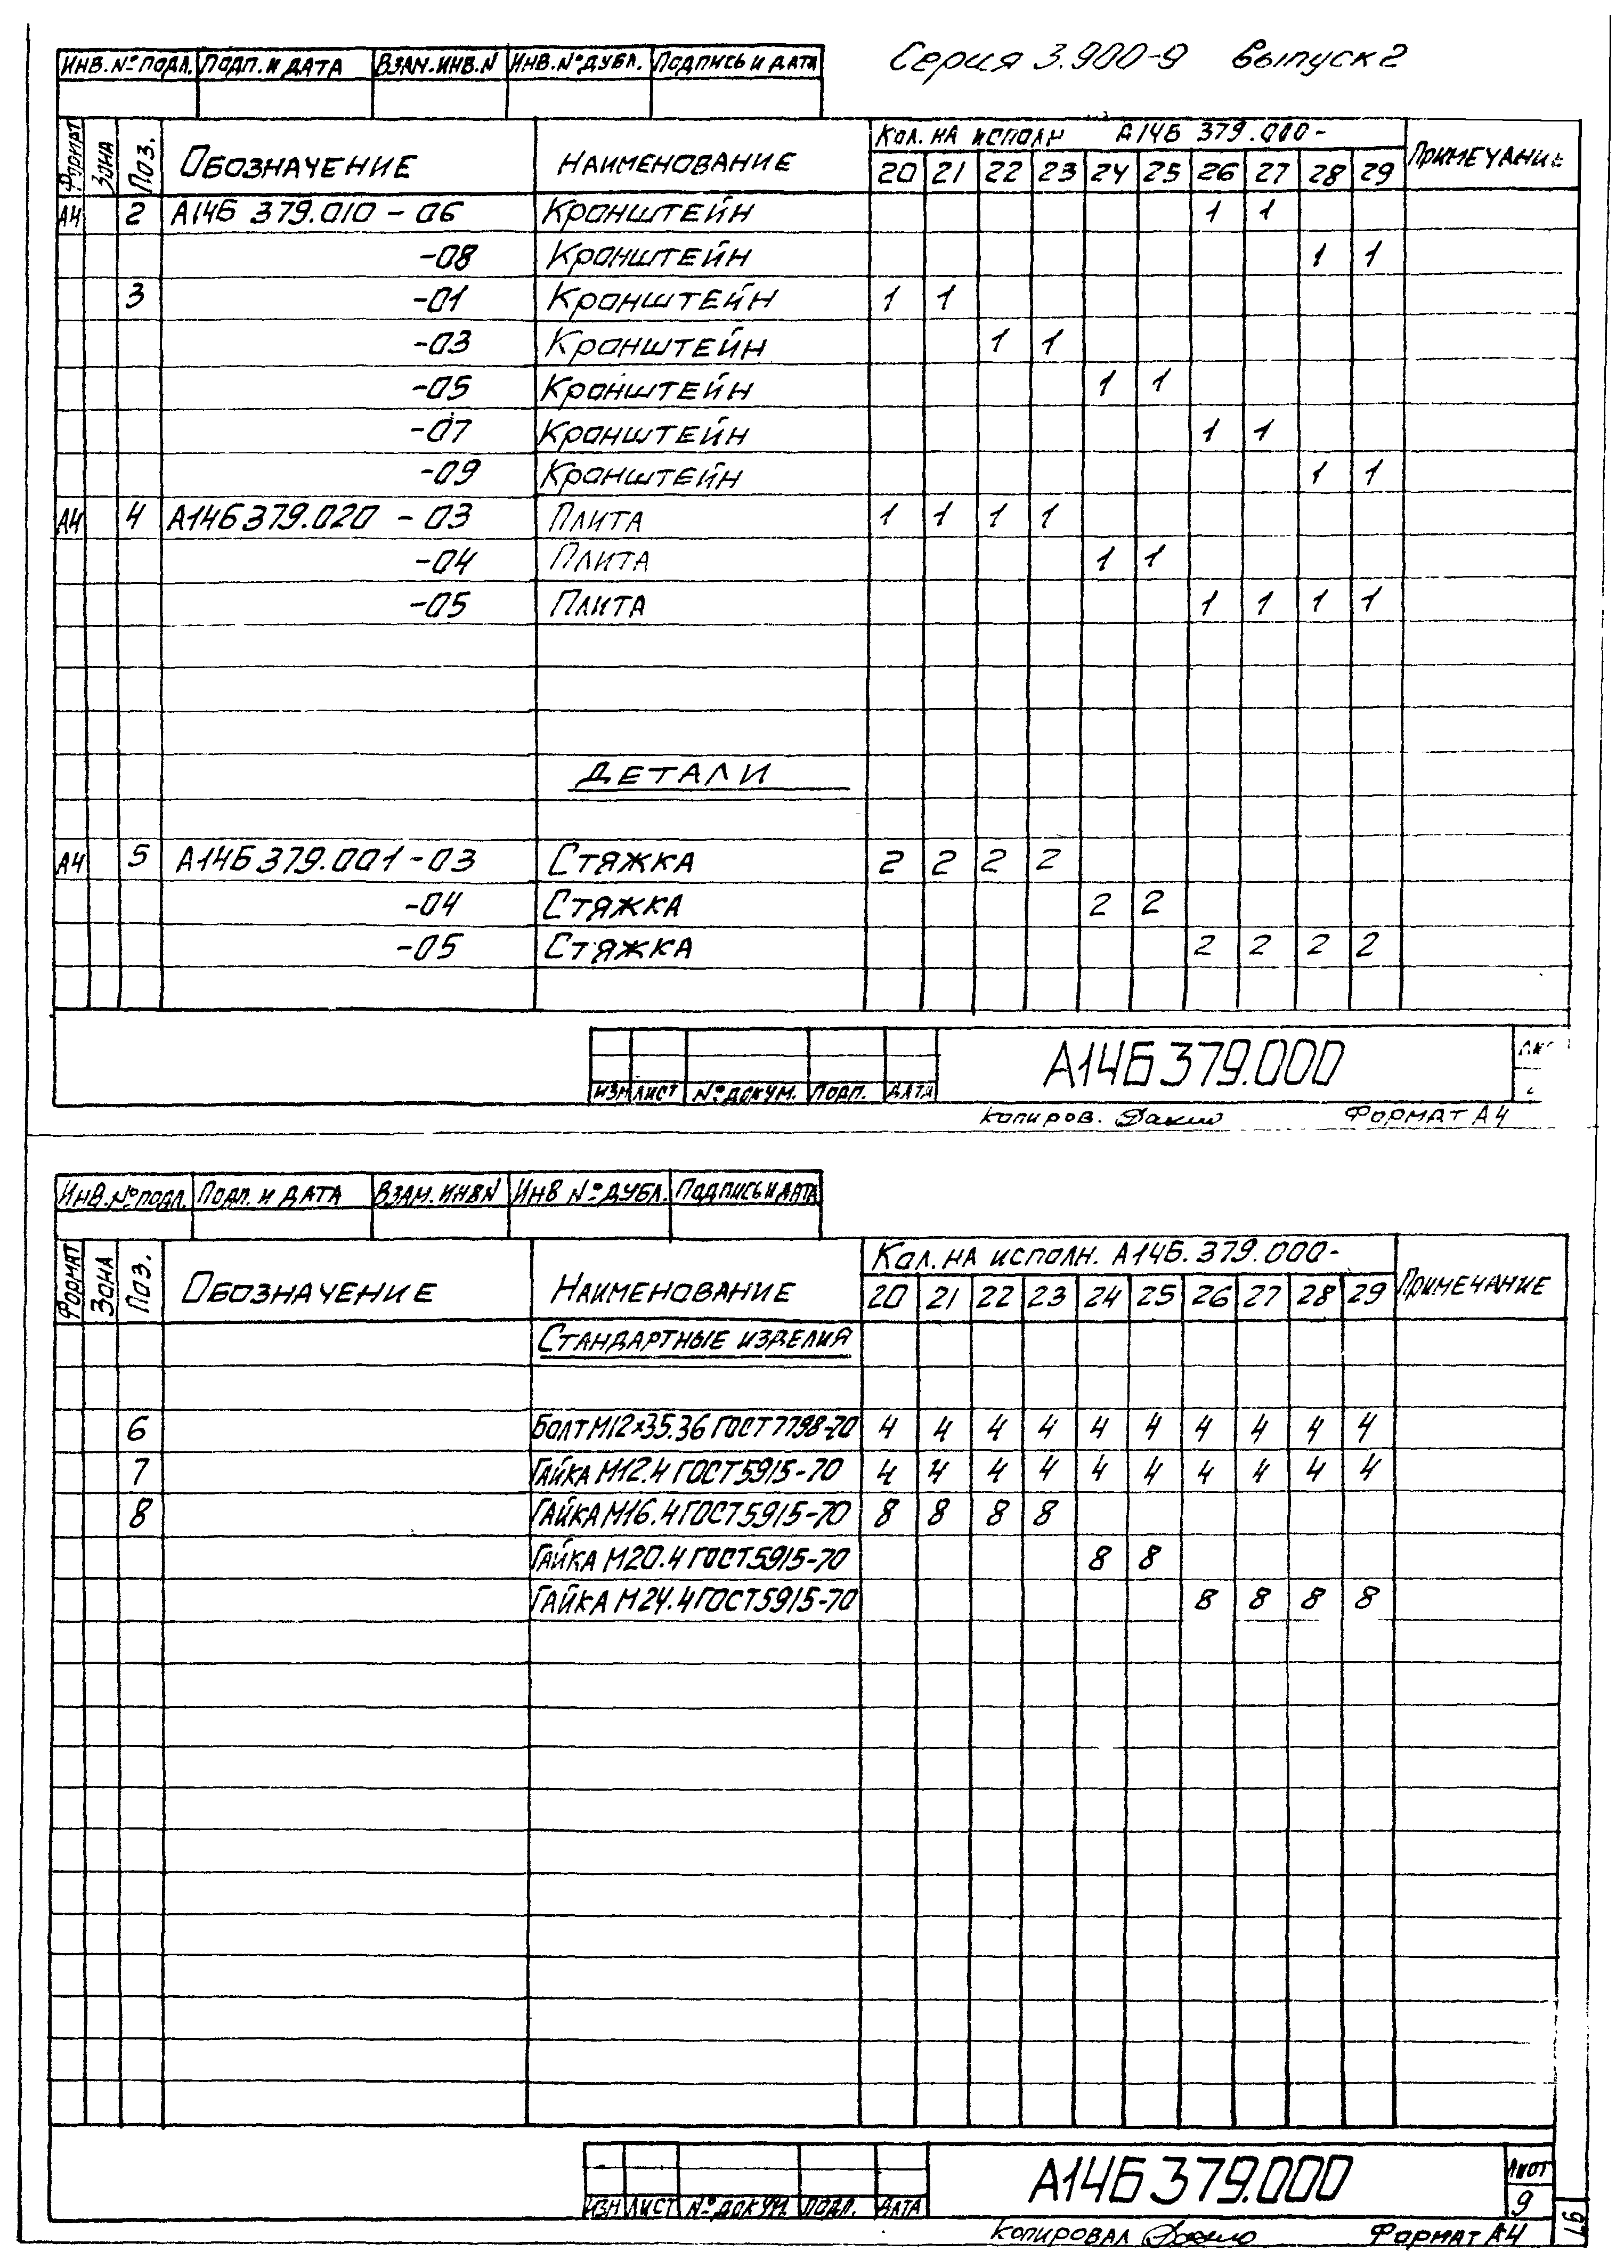 Серия 3.900-9 Выпуск 2
Инв. № подл. Подп. и дата Взам. инв. N Инв. № дубл. Подпись и дата
Формат Зона Поз. Обозначение Наименование Кол. на исполн А14Б 379.000- Примечание
20 21 22 23 24 25 26 27 28 29
А4 2 А14Б 379.010 - 06 Кронштейн 1 1
-08 Кронштейн 1 1
3 -01 Кронштейн 1 1
-03 Кронштейн 1 1
-05 Кронштейн 1 1
-07 Кронштейн 1 1
-09 Кронштейн 1 1
А4 4 А14Б 379.020 - 03 Плита 1 1 1 1
-04 Плита 1 1
-05 Плита 1 1 1 1
Детали
А4 5 А14Б 379.001 - 03 Стяжка 2 2 2 2
-04 Стяжка 2 2
-05 Стяжка 2 2 2 2
А14Б 379.000
Изм Лист № докум. Подп. Дата
Копиров. Формат А4
Инв. № подл. Подп. и дата Взам. инв N Инв № дубл. Подпись и дата
Формат Зона Поз. Обозначение Наименование Кол. на исполн. А14Б. 379.000- Примечание
20 21 22 23 24 25 26 27 28 29
Стандартные изделия
6 Болт М12×35.36 ГОСТ 7798-70 4 4 4 4 4 4 4 4 4 4
7 Гайка М12.4 ГОСТ 5915-70 4 4 4 4 4 4 4 4 4 4
8 Гайка М16.4 ГОСТ 5915-70 8 8 8 8
Гайка М20.4 ГОСТ 5915-70 8 8
Гайка М24.4 ГОСТ 5915-70 8 8 8 8
А14Б 379.000 Лист
Изм Лист № докум. Подп. Дата 9
Копировал Формат А4
97